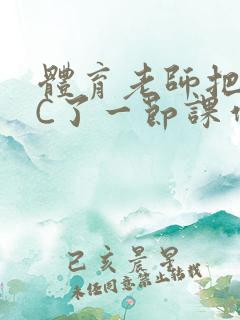 體育老師把
C了一節課
己亥晨星
未经同意禁止转载